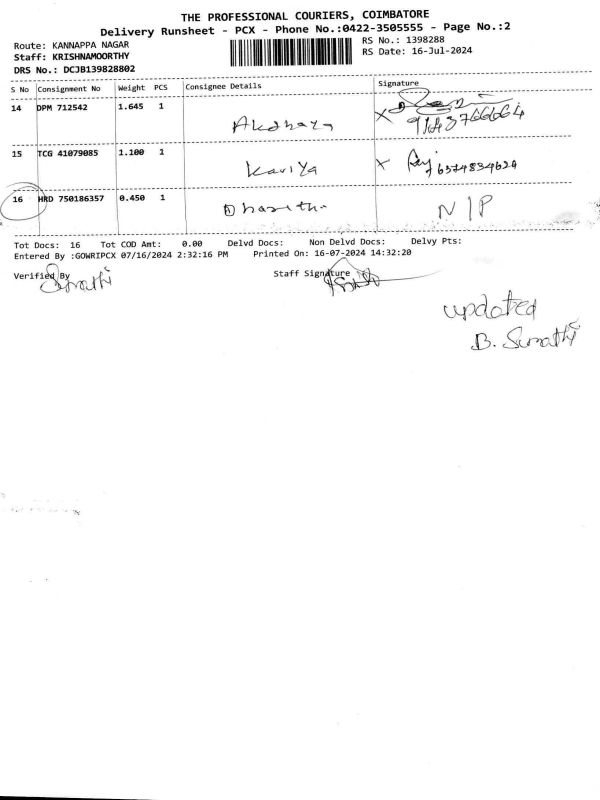 THE PROFESSIONAL COURIERS, COIMBATORE
Delivery Runsheet - PCX - Phone No.:0422-3505555 - Page No.:2
Route: KANNAPPA NAGAR
RS No.: 1398288
Staff: KRISHNAMOORTHY
RS Date: 16-Jul-2024
DRS No.: DCJB139828802
S No Consignment No Weight PCS Consignee Details Signature
14 DPM 712542 1.645 1
Akshaya
15 TCG 41079085 1.100 1
Kaviya 6374834624
16 HRD 750186357 0.450 1
N/P
Tot Docs: 16 Tot COD Amt: 0.00 Delvd Docs: Non Delvd Docs: Delvy Pts:
Entered By :GOWRIPCX 07/16/2024 2:32:16 PM Printed On: 16-07-2024 14:32:20
Verified By Staff Signature
Sumathi
updated
B. Sumathi